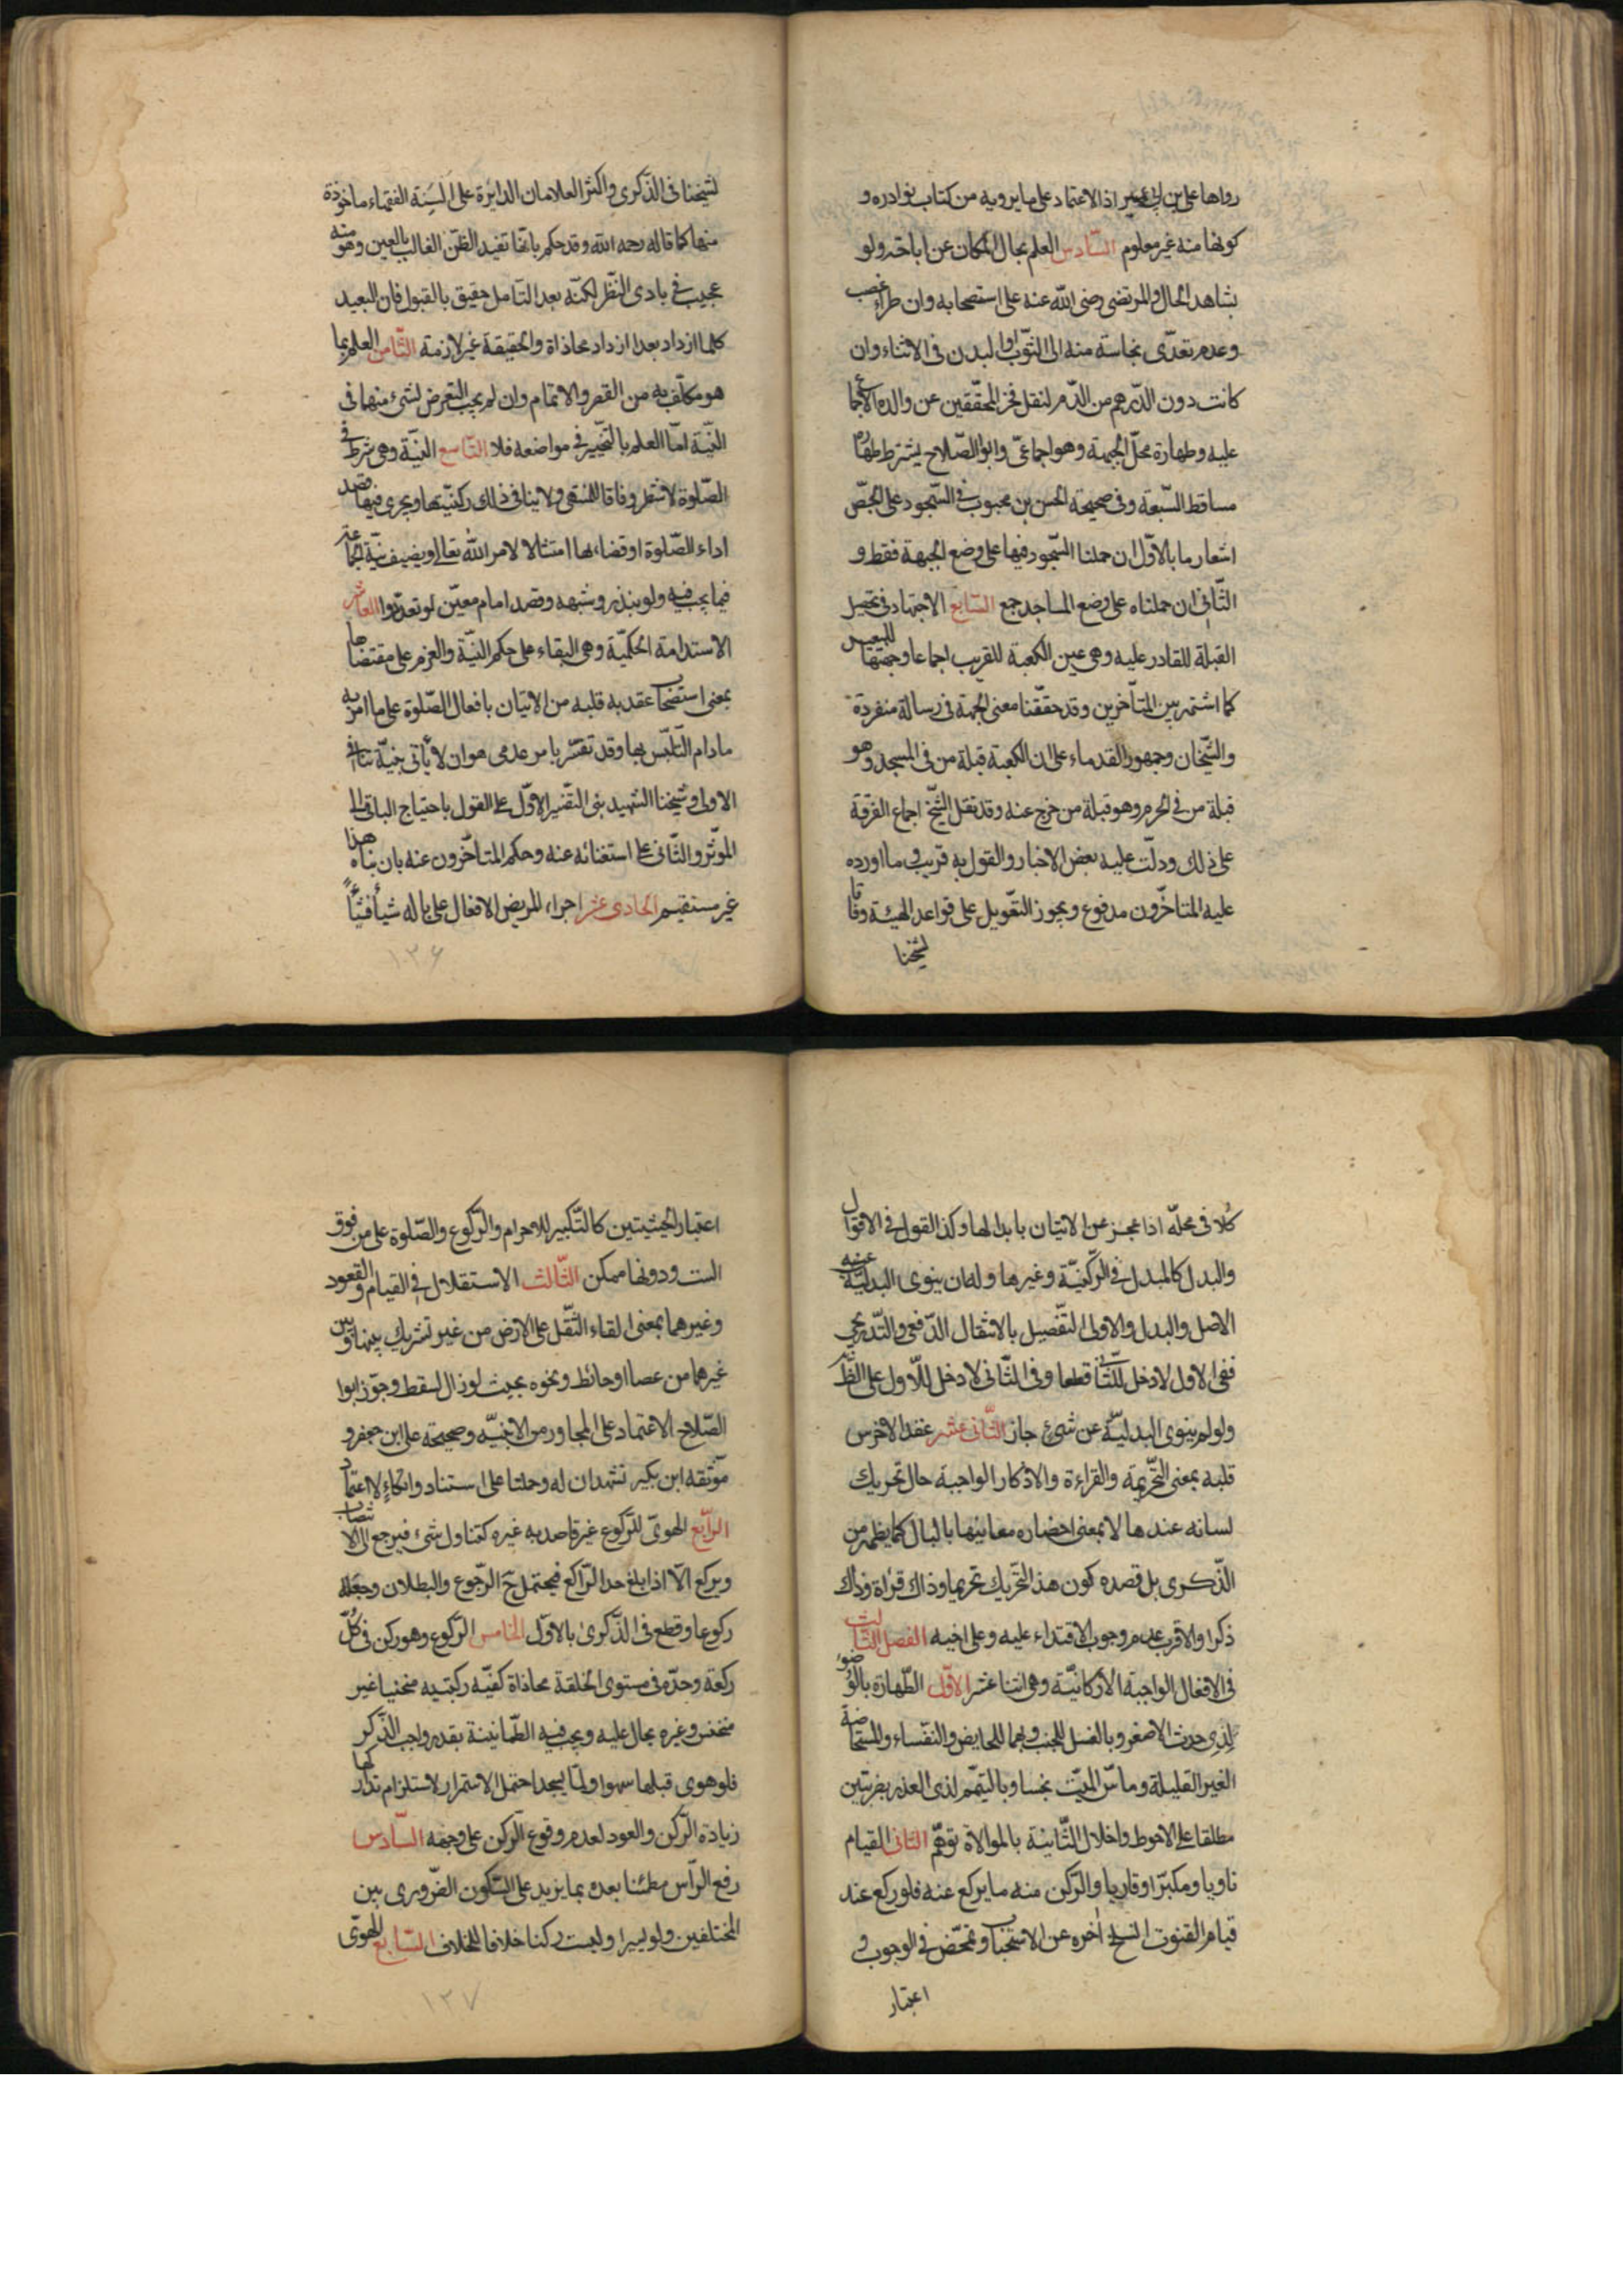 رواها على بن ابى عمير اذ الاعتماد على ما يرويه من كتاب نوادره و
كونها منه غير معلوم السّادس العلم بحال المكان عن اباحته ولو
بشاهد الحال والمرتضى رضى اللّه عنه على استصحابه وان طراء غصب
وعدم تعدّى نجاسته منه الى الثّوب او البدن فى الاثناء وان
كانت دون الدّرهم من الدّم لنقل فخر المحقّقين عن والده الاجماع
عليه وطهارة محلّ الجبهة وهو اجماعىّ وابو الصّلاح يشترط طهارة
مساقط السّبعة وفى صحيحة الحسن بن محبوب فى السّجود على الجصّ
اشعار ما بالاوّل ان حملنا السّجود فيها على وضع الجبهة فقط و
الثّانى ان حملناه على وضع المساجد جمع السّابع الاجتهاد فى تحصيل
القبلة للقادر عليه وهى عين الكعبة للقريب اجماعا وجهتها للبعيد
كما اشتهر بين المتأخرين وقد حققّنا معنى الجهة فى رسالة منفردة
والشّيخان وجمهور القدماء على ان الكعبة قبلة من فى المسجد وهو
قبلة من فى الحرم وهو قبلة من خرج عنه وقد نقل الشّيخ اجماع الفرقة
على ذلك ودلّت عليه بعض الاخبار والقول به قريب وما اورده
عليه المتاخّرون مدفوع ويجوز التعّويل على قواعد الهيئة وفاقا
لشيخنا
لشيخنا فى الذّكرى واكثر العلامات الدايرة على السِنة الفقهاء ماخوذة
منها كما قاله رحمه اللّه وقد حكم بانّها تفيد الظّنّ الغالب بالعين وهو منه
عجيب فى بادى النّظر لكنّه بعد التّامل حقيق بالقبول فان البعيد
كلما ازداد بعدا ازداد محاذاة والحقيقة غير لازمة الثّامن العلم بما
هو مكلّف به من القصر والاتمام وان لم يجب التعرض لشىء منهما فى
النّيّة امّا العلم بالتّخيير فى مواضعه فلا التّاسع النيّة وهى شرط فى
الصّلوة لا شطر وفاقا للمنتهى ولا ينافى ذلك ركنيّتها ويجرى فيها قصد
اداء الصّلوة او قضاءلها امتثالا لامر اللّه تعالى ويضيف نيّة الجماعة
فيما يجب فيه ولو بنذر وشبهه وقصد امام معيّن لو تعدّدوا العاشر
الاستدامة الحكميّة وهى البقاء على حكم النيّة والعزم على مقتضاها
بمعنى استصحاب عقد به قلبه من الاتيان بافعال الصّلوة على ما امر به
مادام التّلبّس بها وقد تفسّر بامر عدمى هو ان لا يأتى بنيّة تنافى
الاولى وشيخنا الشهيد بنى التّفسير الاوّل على القول باحتياج الباقى الى
المؤثّر والثّانى على استغنائه عنه وحكم المتأخّرون عنه بان بناه هذا
غير مستقيم الحادى عشر اجراء المريض الافعال على باله شيأ فشيأً
١٣٦
كُلا فى محلّه اذا عجز عن الاتيان بابدالها وكذ القول فى الاقوال
والبدل كالمبدل فى الرّكنيّة وغيرها وله ان ينوى البدليّة عنه
الاصل والبدل والاولى التّفصيل بالانتقال الدّفعى والتّدريجى
ففى الاول لا دخل للثّانى قطعا وفى الثّانى لا دخل للاّول على الظّاهر
ولو لم ينوى البدليّة عن شىئ جاز الثّانى عشر عقد الاخرس
قلبه بمعنى التّحريمة والقراءة والاذكار الواجبة حال تحريك
لسانه عندها لا بمعنى احضاره معانيها بالبال كما يظهر من
الذّكرى بل قصده كون هذا التّحريك تحريما وذاك قراة وذاك
ذكرا والاقرب عدم وجوب الاقتداء عليه وعلى اخيه الفصل الثّالث
فى الافعال الواجبة الاركانيّة وهى اثنا عشر الاوّل الطّهارة بالوُضوء
لِذِى حدث الاصغر وبالغسل للجنب وبهما للحايض والنفّساء والمستحاضة
الغير القليلة وماسّ الميّت نجسا وبالتيمّم لذى العذر بضربتين
مطلقا على الاحوط واخلال الثّانية بالموالاة توهّم الثانى القيام
ناويا ومكبّرا وقاريا والرّكن منه ما يركع عنه فلو ركع عند
قيام القنوت انسلخ اخره عن الاستحباب وتمحّض فى الوجوب و
اعتبار
اعتبار الحيثيتين كالتّكبير للاحرام والرّكوع والصّلوة على من فوق
الست ودونها ممكن الثّالث الاستقلال فى القيام والقعود
وغيرهما بمعنى القاء الثّقل على الارض من غير تشريك بينها وبين
غيرهما من عصا او حائط ونحوه بحيث لو زال لسقط وجوّز ابوا
الصّلاح الاعتماد على المجاور من الابنيّه وصحيحة على ابن جعفر و
موّثقه ابن بكير تشهدان له وحملتا على استناد واتكاءٍ لا اعتماد
الرّابع الهوىّ للرّكوع غير قاصد به غيره كتناول شىء فيرجع الى الانتصاب
ويركع الّا اذا بلغ حد الرّاكع فيحتمل حَ الرّجوع والبطلان وجعله
ركوعا وقطع فى الذّكرىٰ بالاوّل الخامس الرّكوع وهو ركن فى كُلّ
ركعة وحدّه فى مستوى الخلقة محاذاة كفيّه ركبتيه منحنيا غير
منخنس وغيره يحال عليه ويجب فيه الطّمانينة بقدر واجب الذّكر
فلو هوى قبلها سهوا ولمّا يسجد احتمل الاستمرار لاستلزام تداركها
زيادة الرّكن والعود لعدم وقوع الرّكن على وجهه السّادس
رفع الرّأس مطمئنا بعده بما يزيد على السّكون الضّرورى بين
المختلفين ولو يسيرا وليست ركنا خلافا للخلاف السّابع الهوىّ
١٣٧